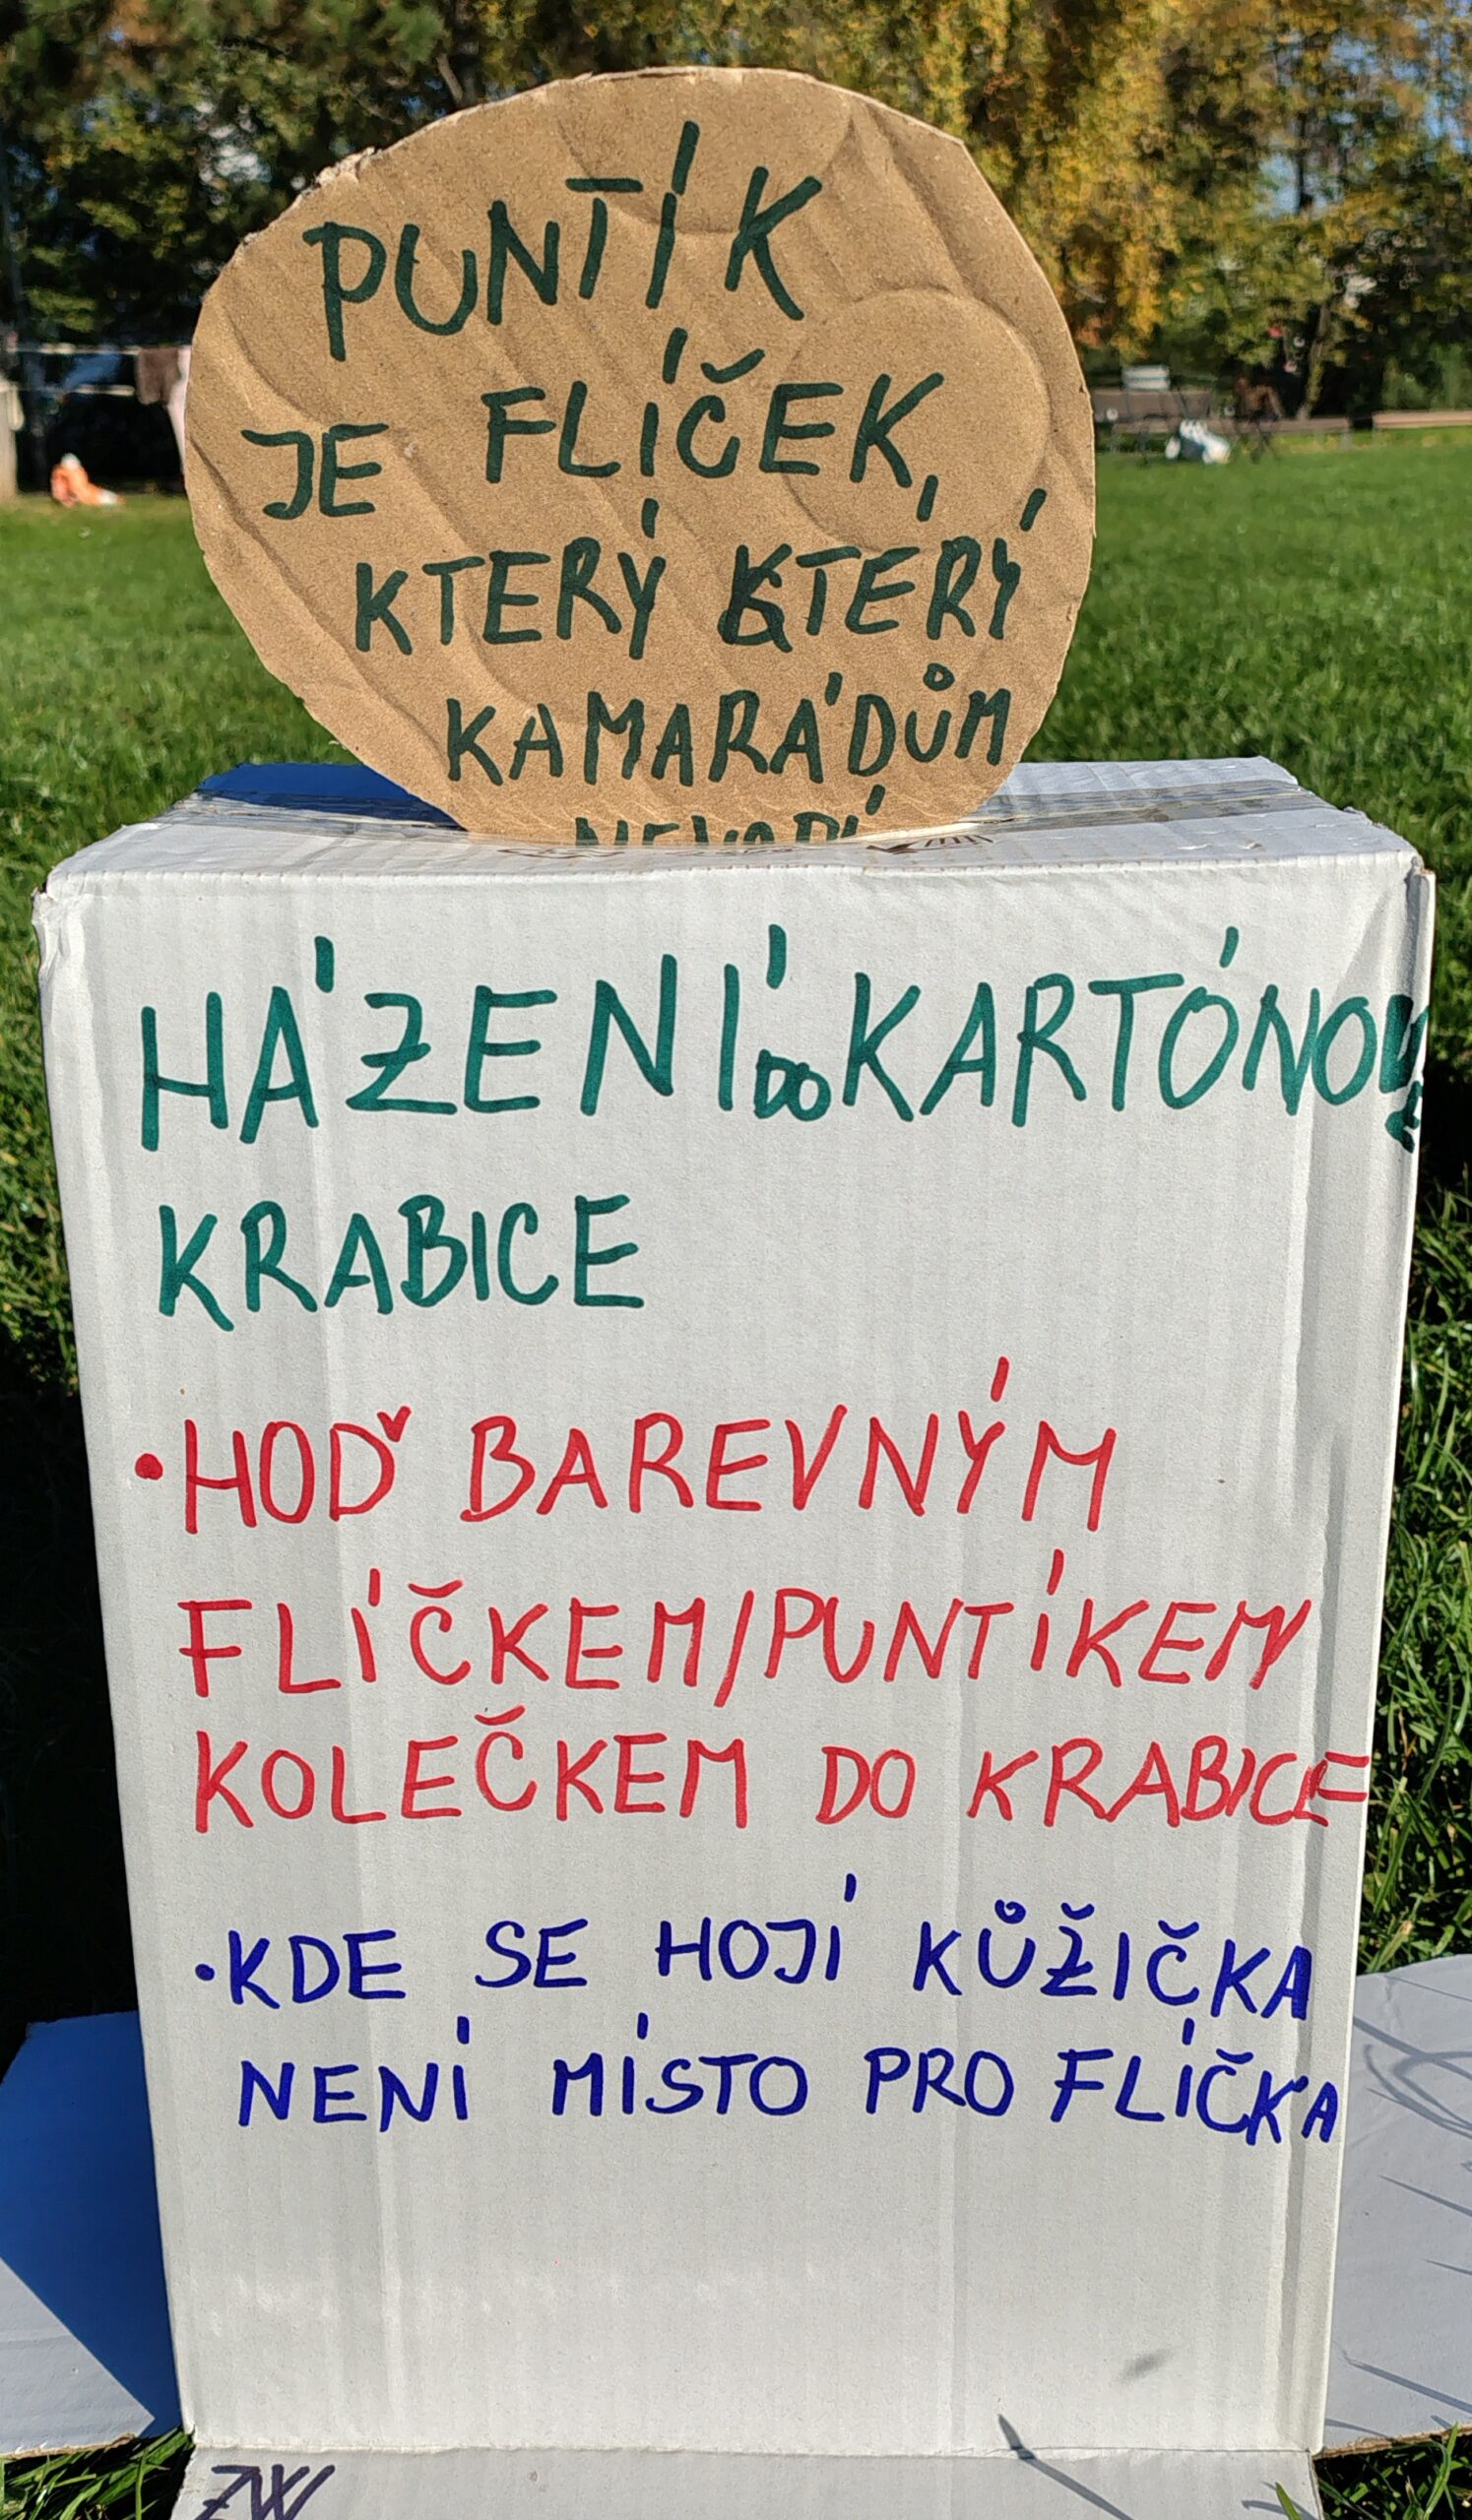 PUNTÍK
JE FLÍČEK,
KTERÝ KTERÝ
KAMARÁDŮM
NEVADÍ
HÁZENÍ DO KARTÓNOVÉ
KRABICE
•HOĎ BAREVNÝM
FLÍČKEM/PUNTÍKEM
KOLEČKEM DO KRABICE
•KDE SE HOJÍ KŮŽIČKA
NENÍ MÍSTO PRO FLÍČKA